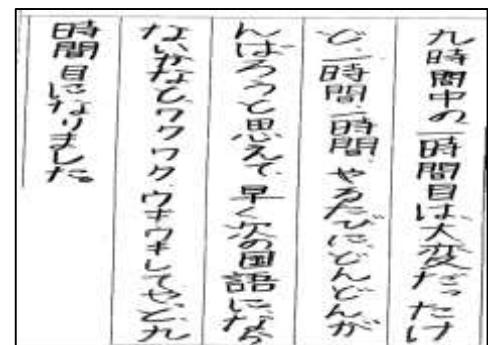 九時間中の一時間目は、大変だったけ
ど、一時間一時間、やるたびに、どんどんが
んばろうと思えて、早く次の国語になら
ないかなとワクワク、ウキウキしてやっと九
時間目になりました。